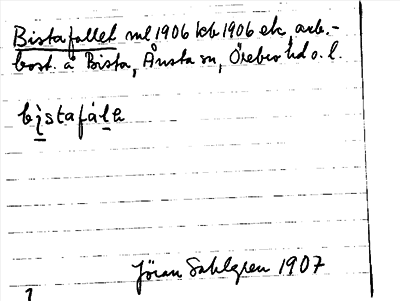 Bistafallet ml 1906 kb 1906 ek, arb.-
bost. å Bista, Ånsta sn, Örebro hd o. l.
bistafála
Jöran Sahlgren 1907